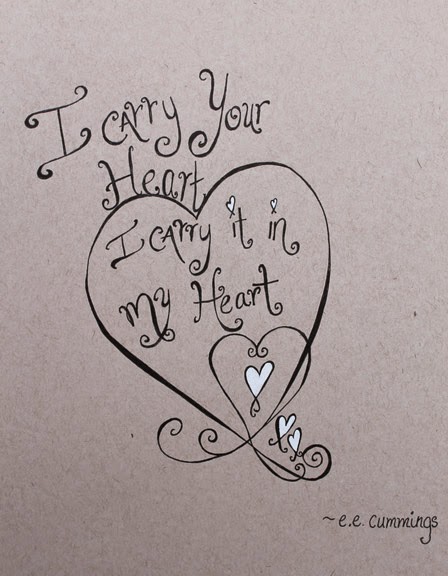 I carry Your
Heart
I carry it in
my Heart
~ e.e. cummings